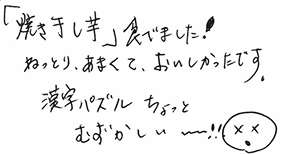 「焼き干し芋」食でました!
ねっとり、あまくて、おいしかったです。
漢字パズル ちょっと
むずかしい〜!!